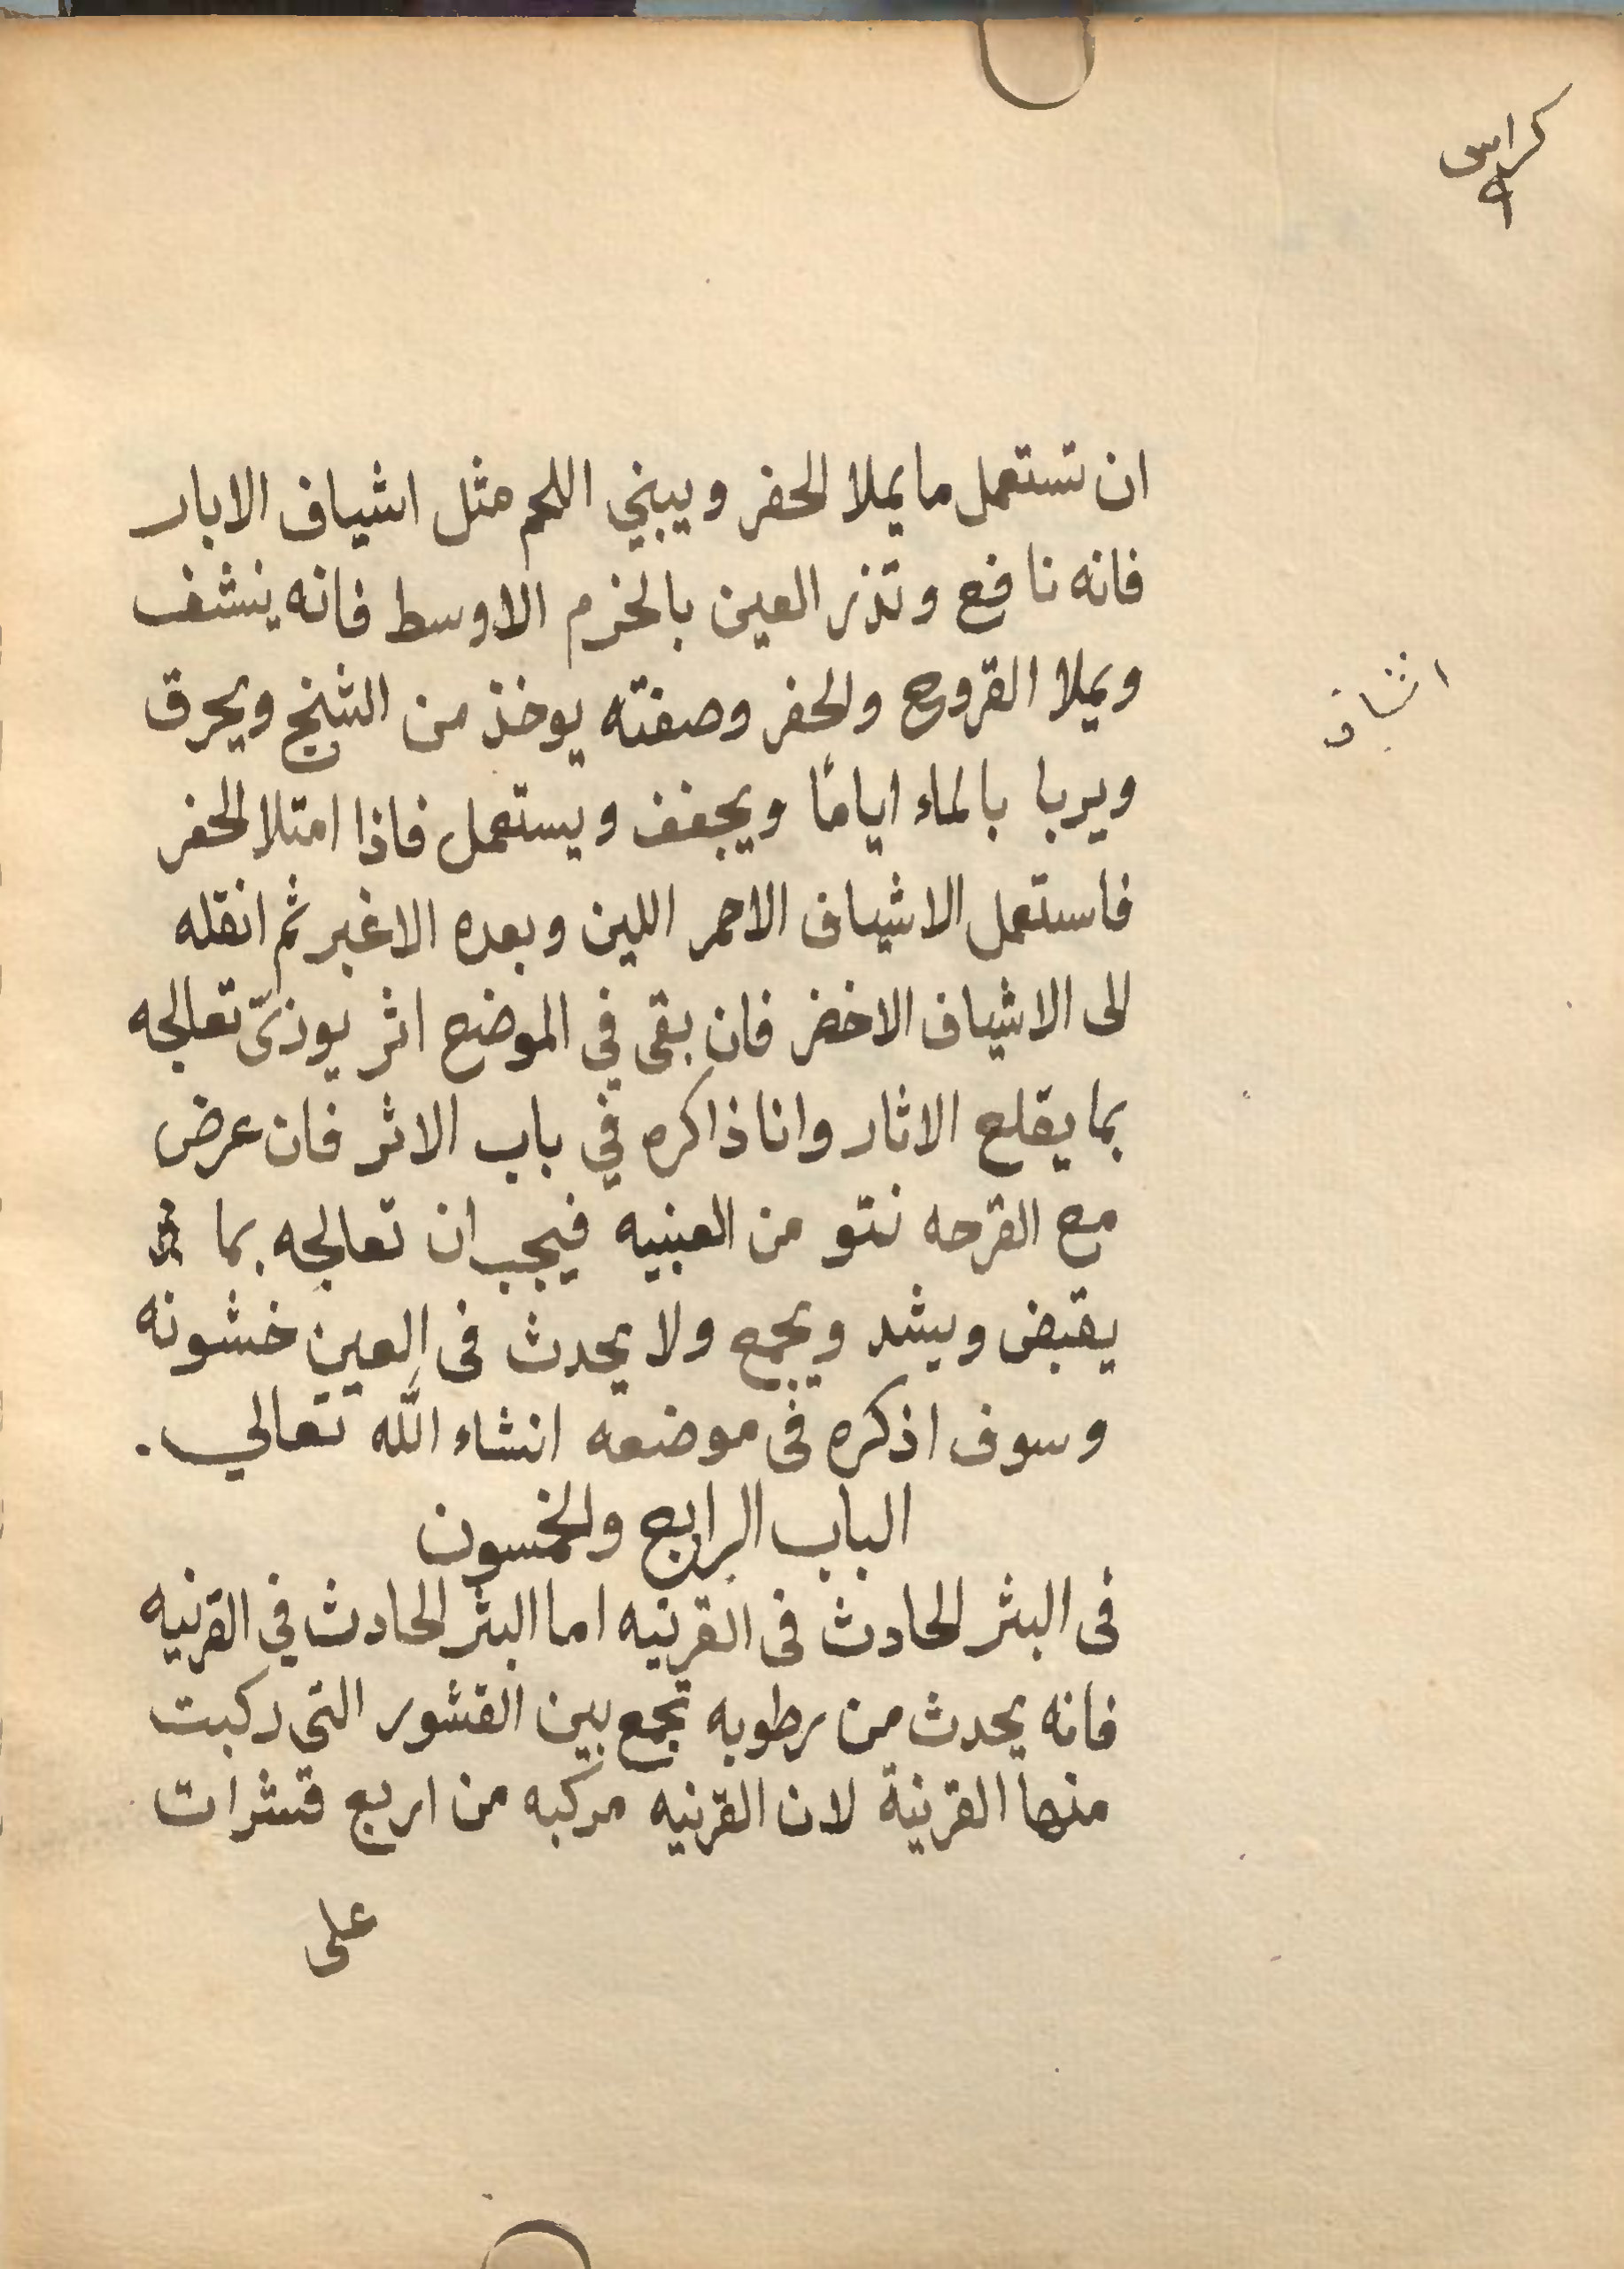 كراس
٩
ان تستعمل ما يملا الحفر ويبني اللحم مثل اشياف الابار
فانه نافع وتذر العين بالخزم الاوسط فانه ينشف
ويملا القروح والحفر وصفته يوخذ من الشنج ويحرق
ويربا بالماء اياما ويجفف ويستعمل فاذا امتلا الحفر
فاستعمل الاشياف الاحمر اللين وبعده الاغبر ثم انقله
الى الاشياف الاخضر فان بقى في الموضع اثر يوذى تعالجه
بما يقلع الاثار وانا ذاكره في باب الاثر فان عرض
مع القرحه نتو من العنبيه فيجب ان تعالجه بما
يقبض ويشد ويجمع ولا يحدث فى العين خشونه
وسوف اذكره فى موضعه انشاء الله تعالي.
الباب الرابع والخمسون
فى البثر الحادث فى القرنيه اما البثر الحادث في القرنيه
فانه يحدث من رطوبه تجمع بين القشور التى ركبت
منها القرنية لان القرنيه مركبه من اربع قشرات
على